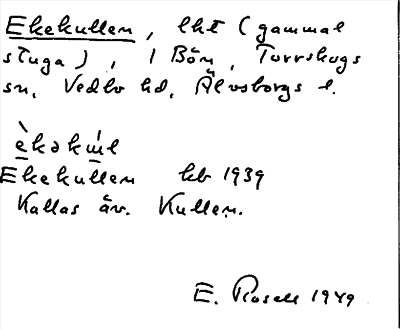 Ekekullen, lht (gammal
stuga), i Bön, Torrskogs
sn, Vedbo hd, Älvsborgs l.
èkəkɯ́l
Ekekullen kb 1939
Kallas äv. Kullen.
E. Rosell 1949